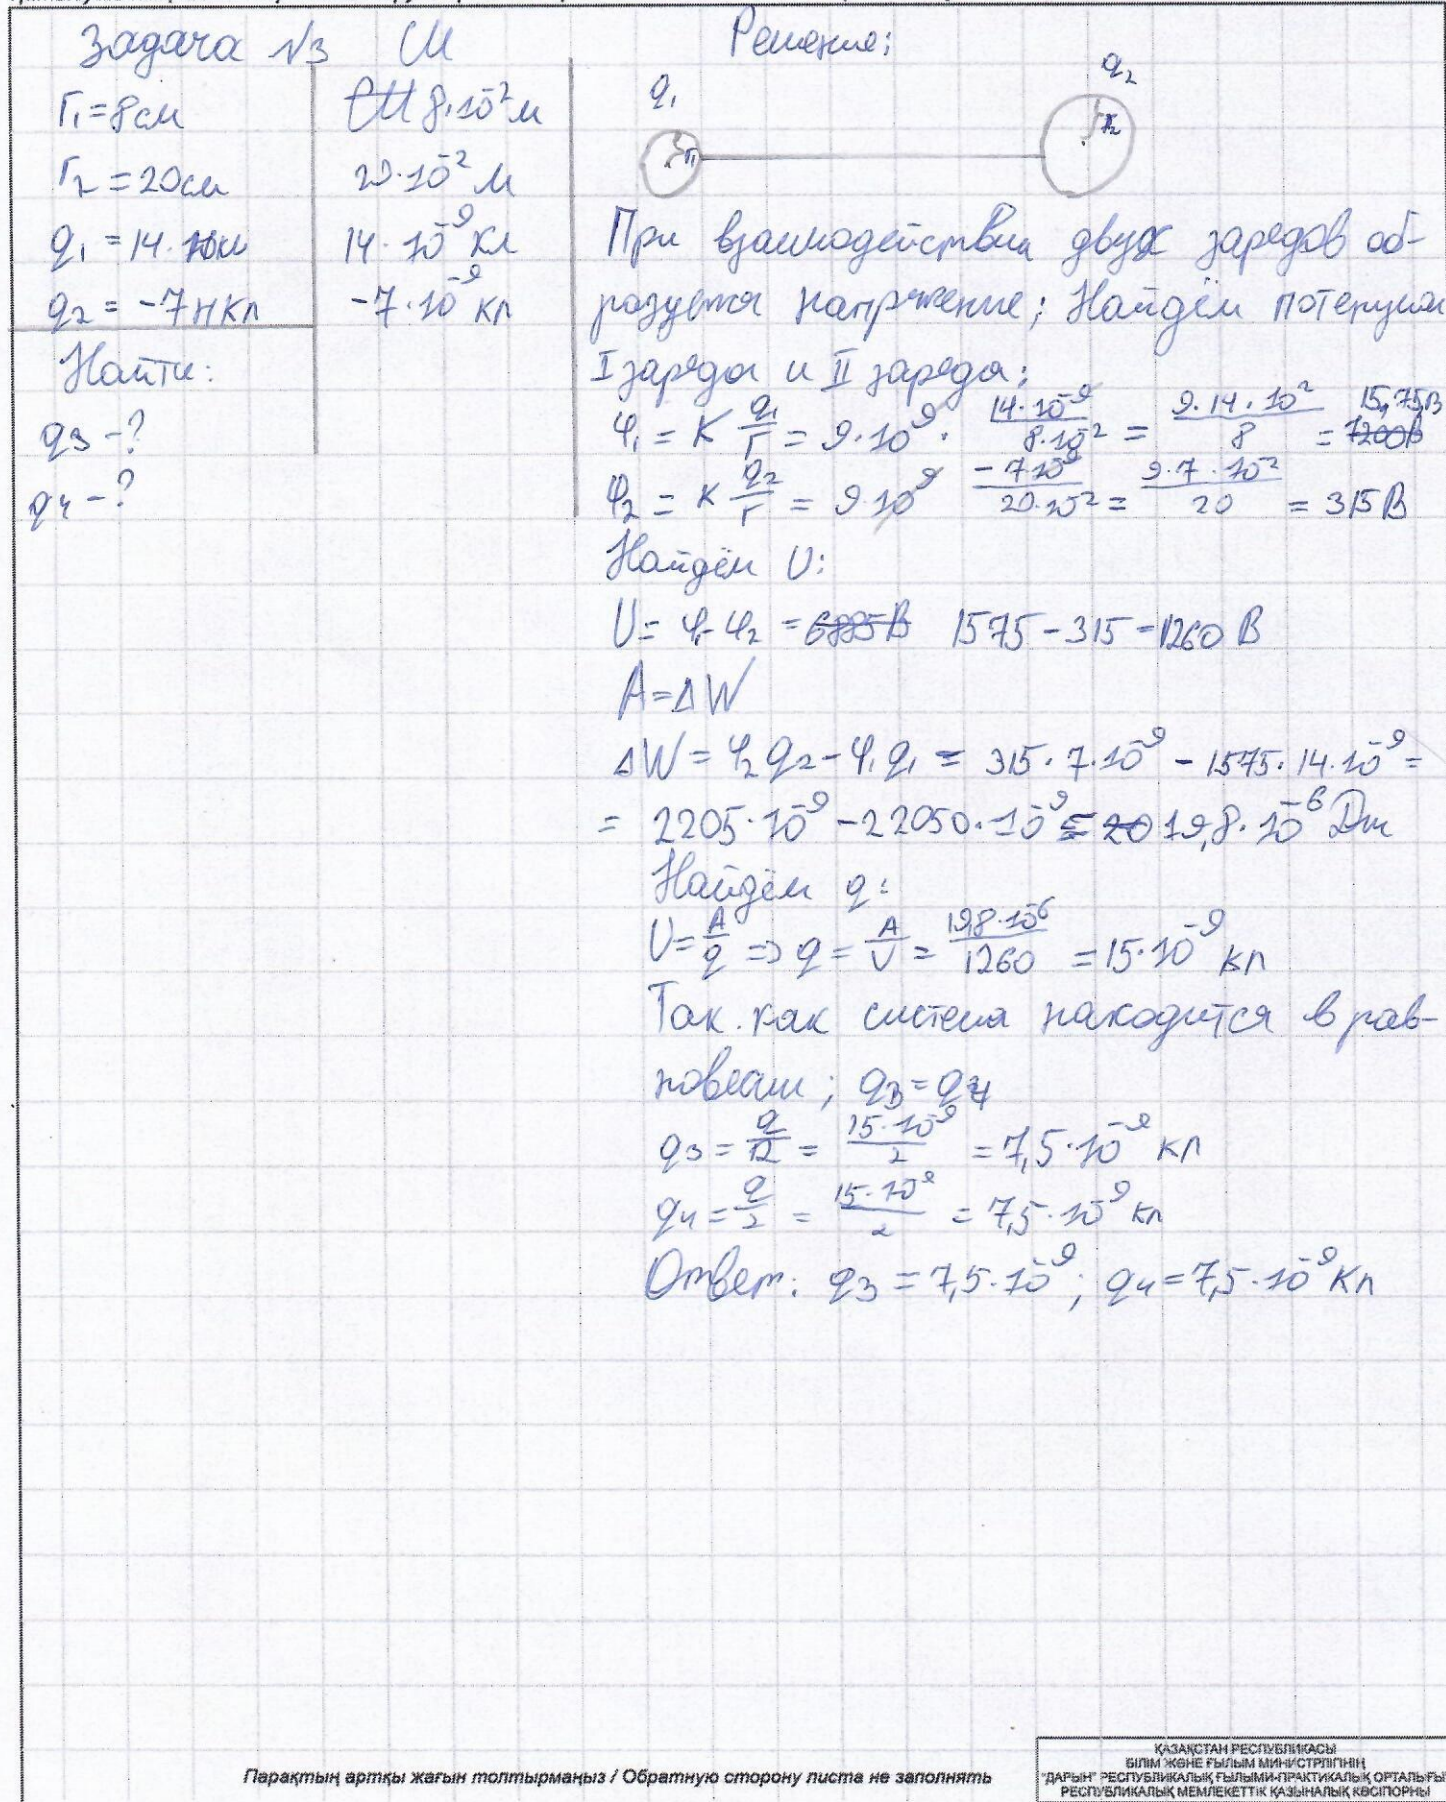 Задача №3 СИ
Решение:
r₁ = 8см 8·10⁻² м
r₂ = 20см 20·10⁻² м
q₁ = 14·нкл 14·10⁻⁹ Кл
q₂ = -7 нкл -7·10⁻⁹ кл
Найти:
q3 - ?
q4 - ?
q₁ r₁ q₂ r₂
При взаимодействии двух зарядов об-
разуется напряжение; Найдём потенциал
I заряда и II заряда:
φ₁ = K q₁/r = 9·10⁹ · 14·10⁻⁹/8·10⁻² = 9·14·10²/8 = 1575В
φ₂ = K q₂/r = 9·10⁹ -7·10⁻⁹/20·10⁻² = 9·7·10²/20 = 315 В
Найдём U:
U = φ₁-φ₂ = 6885 В 1575 - 315 = 1260 В
A = ΔW
ΔW = φ₂q₂ - φ₁q₁ = 315·7·10⁻⁹ - 1575·14·10⁻⁹ =
= 2205·10⁻⁹ - 22050·10⁻⁹ = 20 19,8·10⁻⁶ Дж
Найдём q:
U = A/q => q = A/U = 19,8·10⁻⁶/1260 = 15·10⁻⁹ кл
Так как система находится в рав-
новесии; q3 = q4
q3 = q/2 = 15·10⁻⁹/2 = 7,5·10⁻⁹ кл
q4 = q/2 = 15·10⁻⁹/2 = 7,5·10⁻⁹ кл
Ответ: q3 = 7,5·10⁻⁹; q4 = 7,5·10⁻⁹ Кл
Парақтың артқы жағын толтырмаңыз / Обратную сторону листа не заполнять
ҚАЗАҚСТАН РЕСПУБЛИКАСЫ
БІЛІМ ЖӘНЕ ҒЫЛЫМ МИНИСТРЛІГІНІҢ
"ДАРЫН" РЕСПУБЛИКАЛЫҚ ҒЫЛЫМИ-ПРАКТИКАЛЫҚ ОРТАЛЫҒЫ
РЕСПУБЛИКАЛЫҚ МЕМЛЕКЕТТІК ҚАЗЫНАЛЫҚ КӘСІПОРНЫ